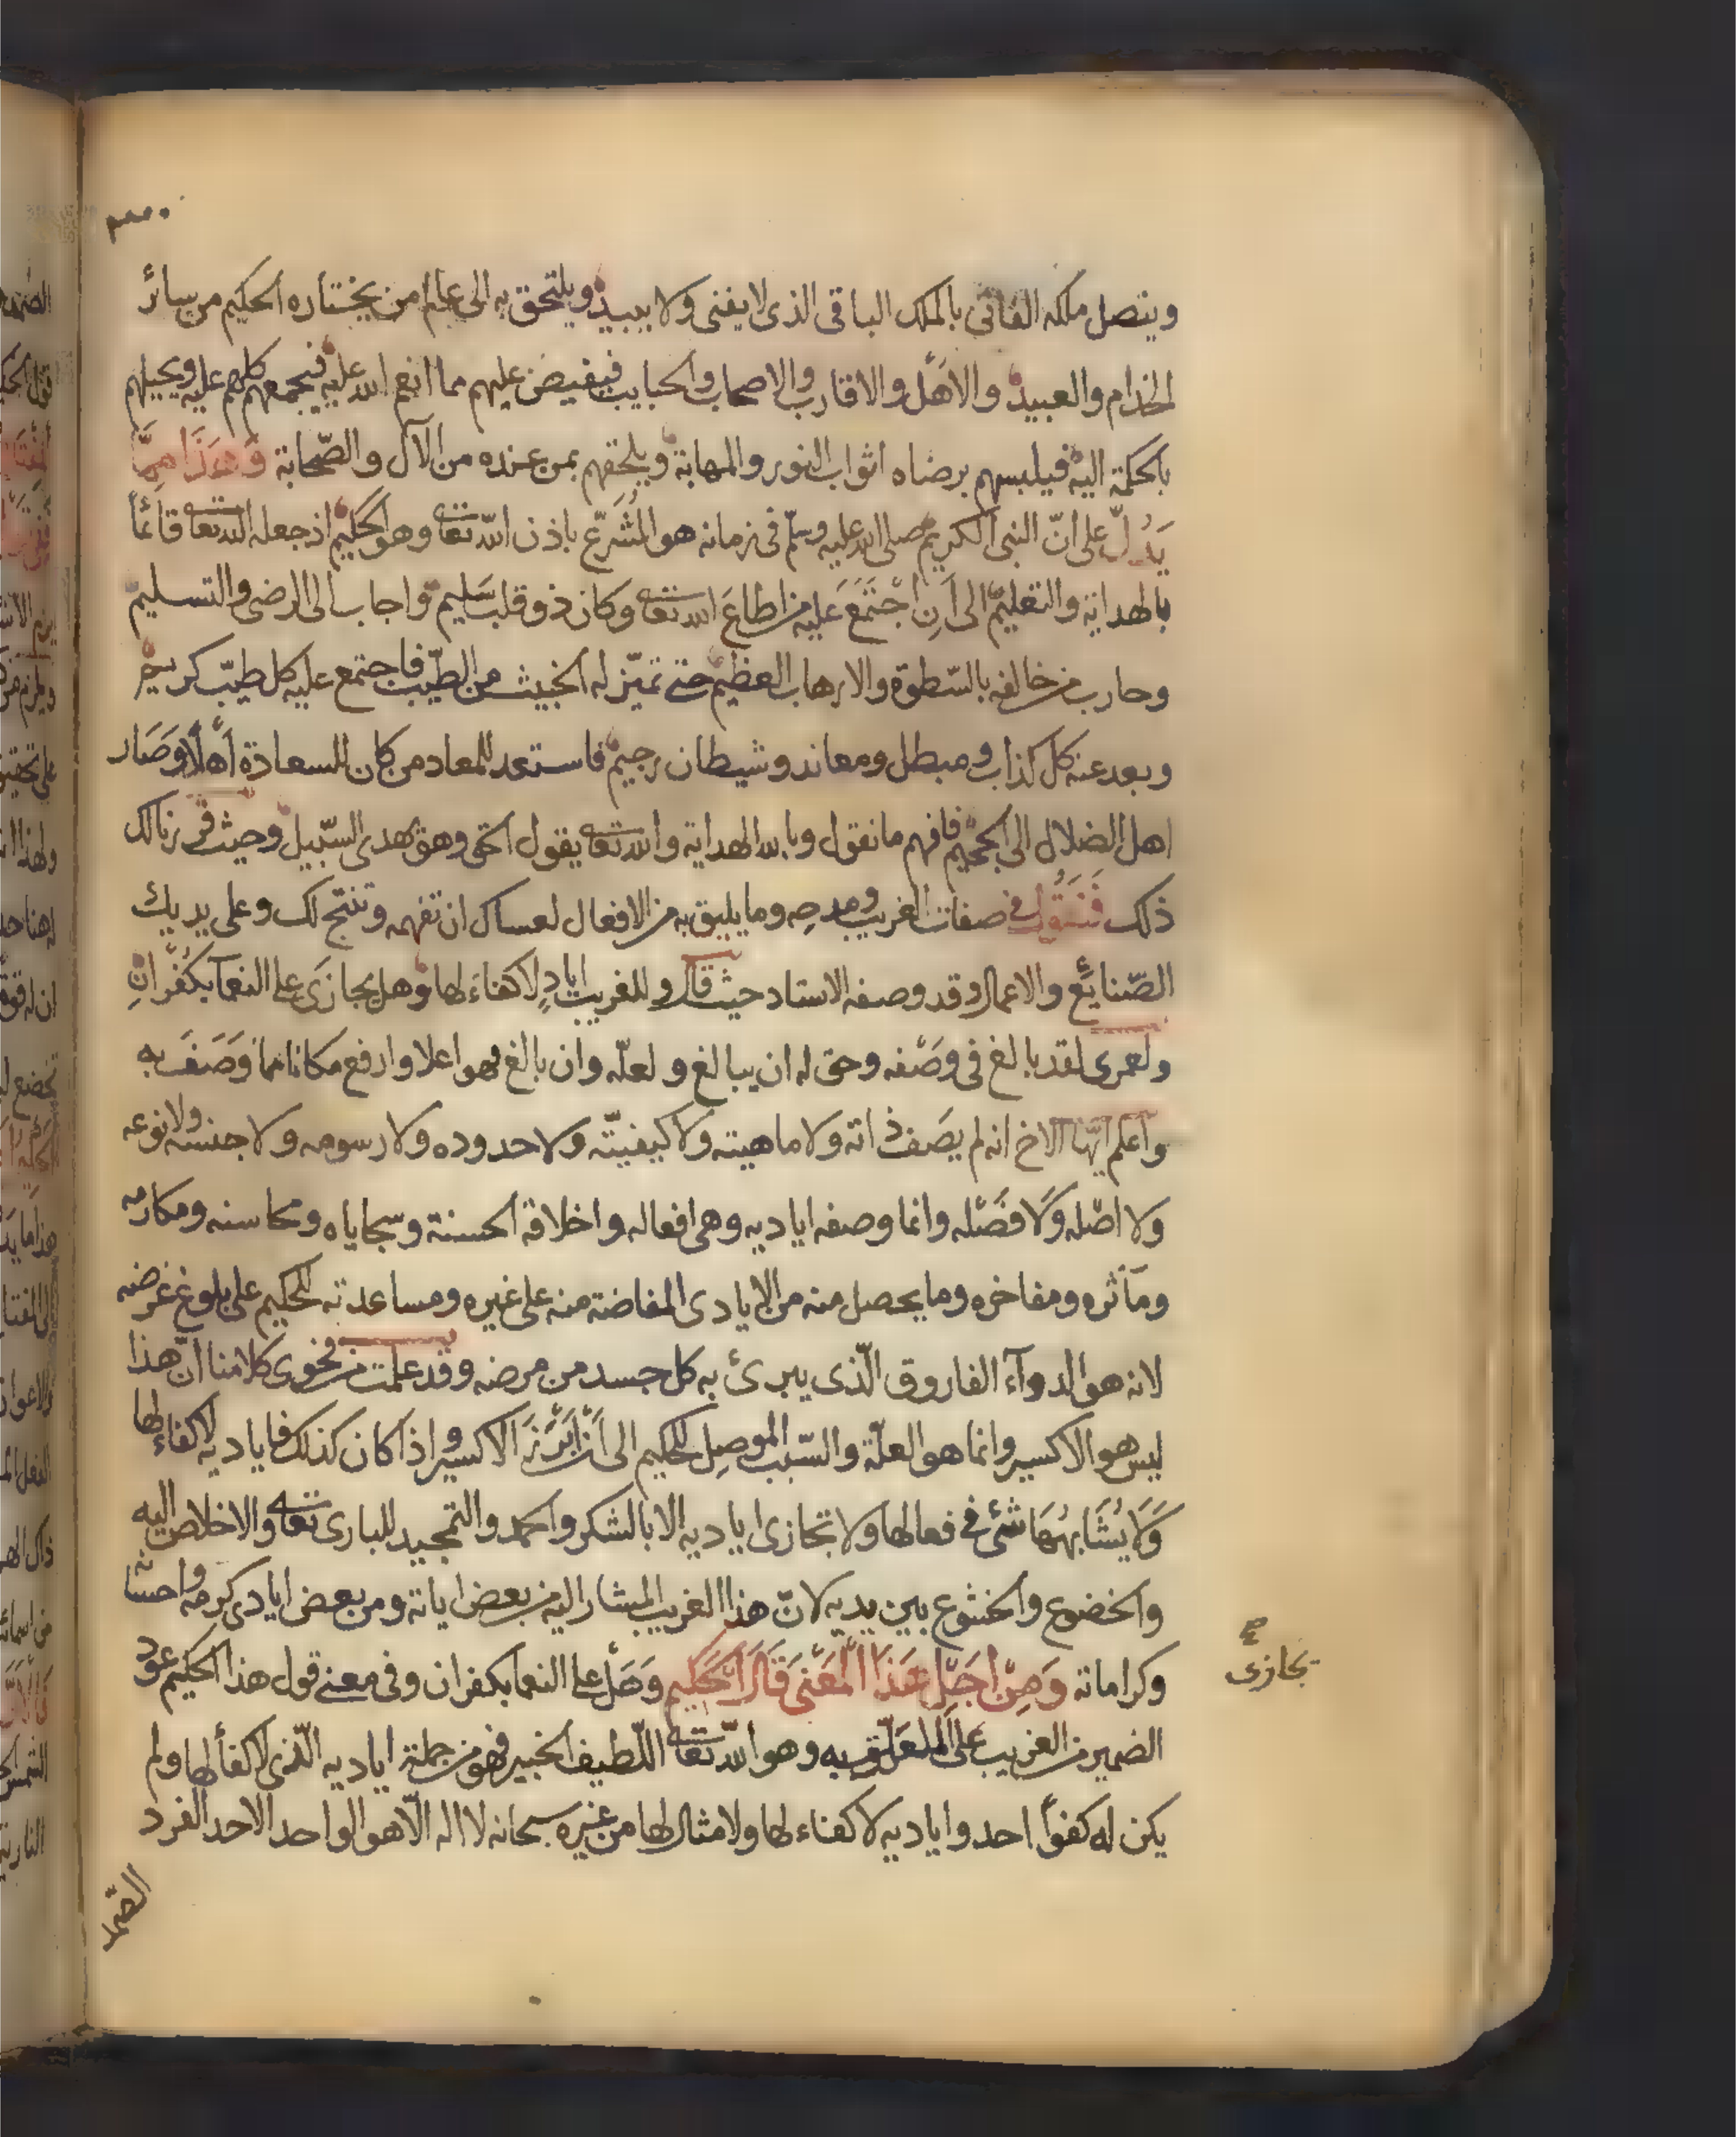 ويتصل ملكه الفاني بالملك الباقي الذي لا يفنى ولا يبيد ويلتحق به الى عالم من يختاره الحكيم من سائر
الخدام والعبيد والاهل والاقارب والاصحاب والحبايب فيفيض عليهم مما انعم الله عليه فيجمعهم كلهم عليه ويحيلهم
بالحكمة اليه فيلبسهم برضاه اثواب النور والمهابة ويلحقهم بمن عنده من الآل والصّحابة وَهَذَا مِمَّا
يَدُلّ على انّ النبي الكريم صلى الله عليه وسلم في زمانه هو المُشَرّع باذن الله تعا وهو الحكيم اذ جعله الله تعا قائمًا
بالهداية والتعليم الى اَنِ اجْتَمَعَ عَليه من اطاعَ الله تعا وكان ذو قلب سَليم واجاب الى الرضى والتسليم
وحارب من خالفه بالسّطوة والارهاب العظيم حتى تميّز له الخبيث من الطيّب فاجتمع عليه كل طيّب كريم
وبعد عنه كل كذاب ومبطل ومعاند وشيطان رجيم فاستعد للمعاد من كان للسعادة اَهْلًا وَصَار
اهل الضلال الى الجحيم فافهم ما نقول وبالله الهداية والله تعا يقول الحق وهو يهدى السّبيل وحيث قررنا لك
ذلك فَنَقُول في صفات الغريب ومدحه وما يليق به من الافعال لعساك ان تفهمه وتنتج لك وعلى يديك
الصّنايع والاعمال وقد وصفه الاستاد حيث قال وللغريب ايادٍ لا كفاءَ لها وهل يجازَى على النعمآ بكُفْرَانِ
ولعمرى لقد بالغ في وَصْفه وحق له ان يبالغ ولعلّه وان بالغ فهو اعلا وارفع مكانا مما وَصَفَ به
واعلم ايّها الاخ انه لم يصَف ذاته ولا ماهيته ولا كيفيتّه ولا حدوده ولا رسومه ولا جنسه ولا نوعه
ولا اصْله وَلَا فَصْله وانما وصفه اياديه وهى افعاله واخلاقه الحسنة وسجاياه ومحاسنه ومكارمه
ومآثره ومفاخره وما يحصل منه من الايادى المفاضة منه على غيره ومساعدته للحكيم على بلوغ غرضه
لانه هو الدوآء الفاروق الّذى يبرئ به كل جسد من مرضه وقد علمت من فحوى كلامنا انّ هذا
ليس هو الاكسير وانما هو العلّة والسّبب الموصِل للحكيم الى اَنْ اَبْرَزَ الاكسير واذا كان كذلك فاياديه لا كفاء لها
وَلَا يُشَابهُهَا شئ في فعالها ولا تجازى اياديه الا بالشكر والحمد والتمجيد للبارى تعا والاخلاص اليه
والخضوع والخشوع بين يديه لانّ هذا الغريب المشار اليه من بعض اياته ومن بعض ايادى كرمه واحسانه
وكراماته وَمِنْ اَجَلِ هَذَا الْمَعْنَى قَالَ الْحَكيم وَهَل على النعما بكفران وفي معنى قول هذا الحكيم عود
الضمير من الغريب على المعَلَّق به وهو الله تعا اللّطيف الخبير فهو من جملة اياديه الّتي لا كفأ لها ولم
يكن له كفوًا احد واياديه لا كفاء لها ولا مثال لها من غيره سبحانه لا اله الّا هو الواحد الاحد الفرد
الصّمد
يجازى
صح